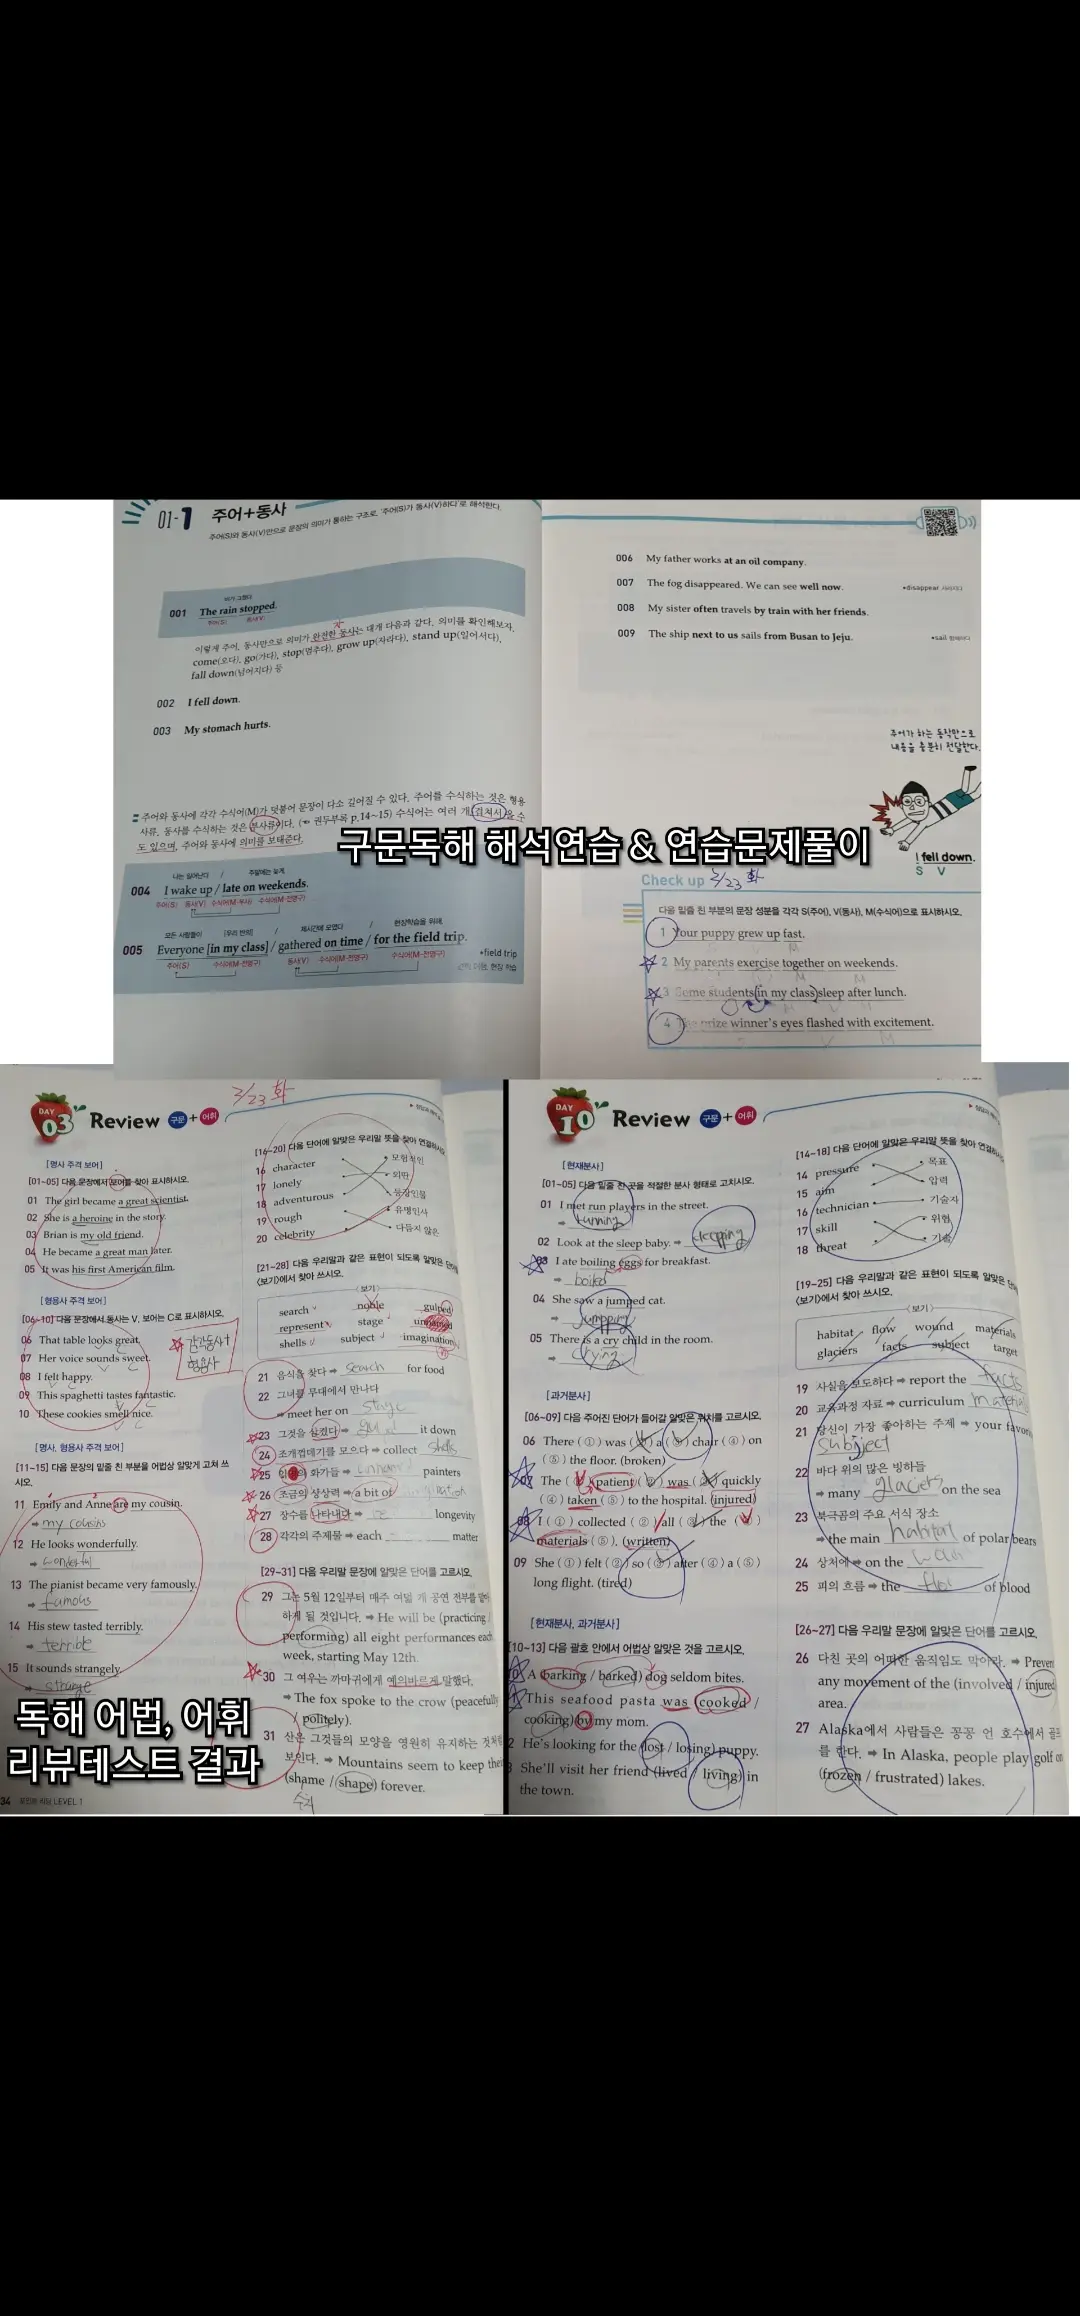 01-1 주어+동사
주어(S)와 동사(V)만으로 문장의 의미가 통하는 구조로, '주어(S)가 동사(V)하다'로 해석한다.
비가 그쳤다
001 The rain stopped.
주어(S) 동사(V)
이렇게 주어, 동사만으로 의미가 완전한 동사는 대개 다음과 같다. 의미를 확인해보자.
come(오다), go(가다), stop(멈추다), grow up(자라다), stand up(일어서다),
fall down(넘어지다) 등
002 I fell down.
003 My stomach hurts.
주어와 동사에 각각 수식어(M)가 덧붙어 문장이 다소 길어질 수 있다. 주어를 수식하는 것은 형용
사류, 동사를 수식하는 것은 부사류이다. (☞ 권두부록 p.14~15) 수식어는 여러 개 올 수
도 있으며, 주어와 동사에 의미를 보태준다.
나는 일어난다 / 주말에는 늦게
004 I wake up / late on weekends.
주어(S) 동사(V) 수식어(M-부사) 수식어(M-전명구)
모든 사람들이 [우리 반의] / 제시간에 모였다 / 현장학습을 위해
005 Everyone [in my class] / gathered on time / for the field trip.
주어(S) 수식어(M-전명구) 동사(V) 수식어(M-전명구) 수식어(M-전명구)
+field trip
006 My father works at an oil company.
007 The fog disappeared. We can see well now.
+disappear 사라지다
008 My sister often travels by train with her friends.
009 The ship next to us sails from Busan to Jeju.
+sail 항해하다
주어가 하는 동작만으로
내용을 충분히 전달한다.
I fell down.
S V
구문독해 해석연습 & 연습문제풀이
Check up 2/23 화
다음 밑줄 친 부분의 문장 성분을 각각 S(주어), V(동사), M(수식어)으로 표시하시오.
1 Your puppy grew up fast.
2 My parents exercise together on weekends.
3 Some students in my class sleep after lunch.
4 The prize winner's eyes flashed with excitement.
2/23 화
DAY 03 Review 구문 + 어휘
[명사 주격 보어]
[01~05] 다음 문장에서 보어를 찾아 표시하시오.
01 The girl became a great scientist.
02 She is a heroine in the story.
03 Brian is my old friend.
04 He became a great man later.
05 It was his first American film.
[형용사 주격 보어]
[06~10] 다음 문장에서 동사는 V, 보어는 C로 표시하시오.
06 That table looks great.
07 Her voice sounds sweet.
08 I felt happy.
09 This spaghetti tastes fantastic.
10 These cookies smell nice.
감각동사+
형용사
[명사, 형용사 주격 보어]
[11~15] 다음 문장의 밑줄 친 부분을 어법상 알맞게 고쳐 쓰
시오.
11 Emily and Anne are my cousin.
➡ my cousins
12 He looks wonderfully.
➡ wonderful
13 The pianist became very famously.
➡ famous
14 His stew tasted terribly.
➡ terrible
15 It sounds strangely.
➡ strange
독해 어법, 어휘
리뷰테스트 결과
34 LEVEL 1
[16~20] 다음 단어에 알맞은 우리말 뜻을 찾아 연결하시오
16 character 모험적인
17 lonely 외딴
18 adventurous 등장인물
19 rough 유명인사
20 celebrity 다듬지 않은
[21~28] 다음 우리말과 같은 표현이 되도록 알맞은 단어
〈보기〉에서 찾아 쓰시오.
〈보기〉
search noble gulped
represent stage unnamed
shells subject imagination
21 음식을 찾다 ➡ search for food
22 그녀를 무대에서 만나다
➡ meet her on stage
23 그것을 삼켰다 ➡ it down
24 조개껍데기를 모으다 ➡ collect shells
25 화가들 ➡ unnamed painters
26 조금의 상상력 ➡ a bit of imagination
27 장수를 나타내다 ➡ longevity
28 각각의 주제물 ➡ each matter
[29~31] 다음 우리말 문장에 알맞은 단어를 고르시오.
29 그는 5월 12일부터 매주 여덟 개 공연 전부를
하게 될 것입니다. ➡ He will be (practicing /
performing) all eight performances each
week, starting May 12th.
30 그 여우는 까마귀에게 예의바르게 말했다.
➡ The fox spoke to the crow (peacefully
/ politely).
31 산은 그것들의 모양을 영원히 유지하는 것처럼
보인다. ➡ Mountains seem to keep their
(shame / shape) forever.
DAY 10 Review 구문 + 어휘
[현재분사]
[01~05] 다음 밑줄 친 곳을 적절한 분사 형태로 고치시오.
01 I met run players in the street.
➡ running
02 Look at the sleep baby. ➡ sleeping
03 I ate boiling eggs for breakfast.
➡ boiled
04 She saw a jumped cat.
➡ jumpping
05 There is a cry child in the room.
➡ crying
[과거분사]
[06~09] 다음 주어진 단어가 들어갈 알맞은 위치를 고르시오.
06 There (①) was (②) a (③) chair (④) on
(⑤) the floor. (broken)
07 The (①) patient (②) was (③) quickly
(④) taken (⑤) to the hospital. (injured)
08 I (①) collected (②) all (③) the (④)
materials (⑤). (written)
09 She (①) felt (②) so (③) after (④) a (⑤)
long flight. (tired)
[현재분사, 과거분사]
[10~13] 다음 괄호 안에서 어법상 알맞은 것을 고르시오.
10 A (barking / barked) dog seldom bites.
This seafood pasta was (cooked /
cooking) by my mom.
2 He's looking for the (lost / losing) puppy.
3 She'll visit her friend (lived / living) in
the town.
[14~18] 다음 단어에 알맞은 우리말 뜻을 찾아 연결하시오
14 pressure 목표
15 aim 압력
16 technician 기술자
17 skill 위협
18 threat 기술
[19~25] 다음 우리말과 같은 표현이 되도록 알맞은 단어
〈보기〉에서 찾아 쓰시오.
〈보기〉
habitat flow wound materials
glaciers facts subject target
19 사실을 보도하다 ➡ report the facts
20 교육과정 자료 ➡ curriculum materials
21 당신이 가장 좋아하는 주제 ➡ your favorite
subject
22 바다 위의 많은 빙하들
➡ many glaciers on the sea
23 북극곰의 주요 서식 장소
➡ the main habitat of polar bears
24 상처에 ➡ on the
25 피의 흐름 ➡ the flow of blood
[26~27] 다음 우리말 문장에 알맞은 단어를 고르시오.
26 다친 곳의 어떠한 움직임도 막아라. ➡ Prevent
any movement of the (involved / injured
area.
27 Alaska에서 사람들은 꽁꽁 언 호수에서 골프
를 한다. ➡ In Alaska, people play golf on
(frozen / frustrated) lakes.